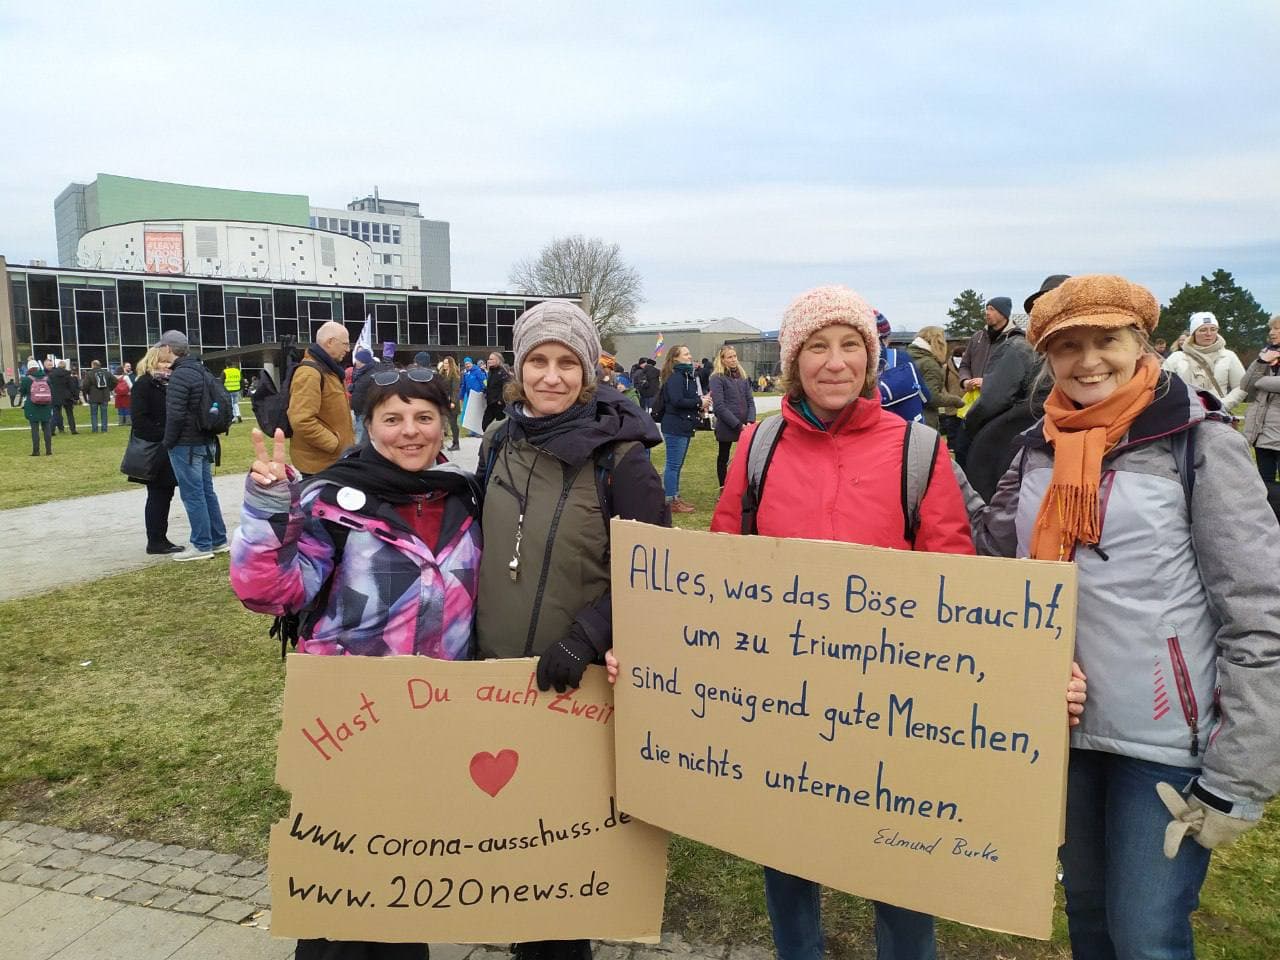 #LEAVE
NOONE
Hast Du auch Zweif
www.corona-ausschuss.de
www.2020news.de
Alles, was das Böse braucht,
um zu triumphieren,
sind genügend gute Menschen,
die nichts unternehmen.
Edmund Burke